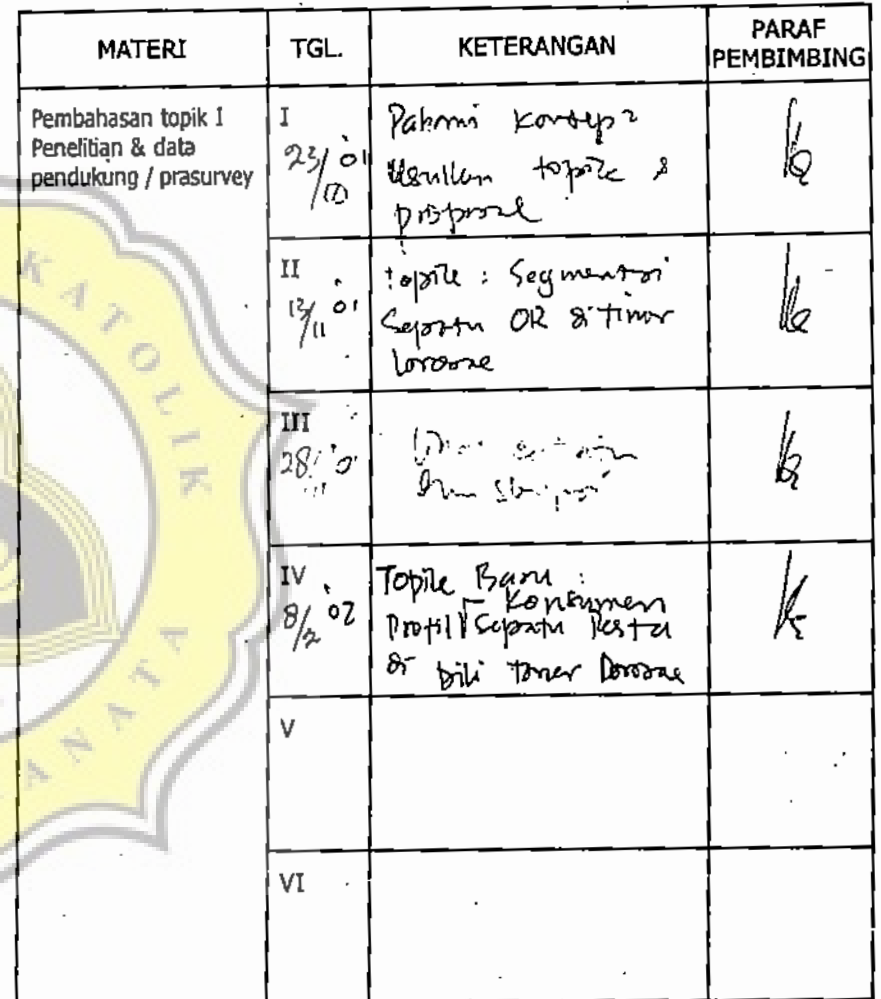 MATERI TGL. KETERANGAN PARAF PEMBIMBING
Pembahasan topik I
Penelitian & data
pendukung / prasurvey
I
23/10 '01
Pahami konsep2
Usulkan topik &
proposal
II
13/11 '01
topik : Segmentasi
Sepatu OR di Timor
Lorosae
III
28/11 '01
IV
8/2 '02
Topik Baru :
Profil Konsumen Sepatu Pesta
di Dili Timor Lorosae
V
VI
KATOLIK
ANATA